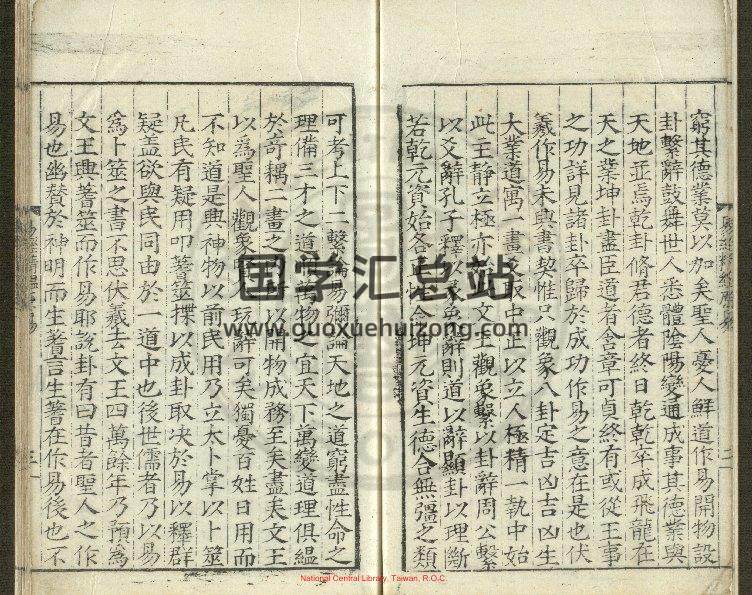 窮其德業莫以加矣聖人憂人鮮道作易開物設
卦繫辭鼓舞世人悉體陰陽變通成事其德業與
天地並焉乾卦脩君德者終日乾乾卒成飛龍在
天之業坤卦盡臣道者含章可貞終有或從王事
之功詳見諸卦卒歸於成功作易之意在是也伏
羲作易未與書契惟只觀象八卦定吉凶吉凶生
大業道寓一畫又取中正以立人極精一執中始
此王靜立極亦此文王觀象繫以卦辭周公繫
以爻辭孔子釋以彖象辭則道以辭顯卦以理斷
若乾元資始各正性命坤元資生德合無彊之類
可考上下二繫論易彌論天地之道窮盡性命之
理備三才之道萬物之宜天下萬變道理俱縕
於奇耦二畫之內所以開物成務至矣盡矣文王
以為聖人觀象玩辭可矣獨憂百姓日用而
不知道是興神物以前民用乃立太卜掌以卜筮
凡民有疑用叩蓍筮揲以成卦取決於易以釋群
疑盖欲與民同由於一道中也後世儒者乃以易
為卜筮之書不思伏羲去文王四萬餘年乃預為
文王興蓍筮而作易耶說卦有曰昔者聖人之作
易也幽贊於神明而生蓍言生蓍在作易後也不
国学汇总站
www.guoxuehuizong.com
National Central Library, Taiwan, R.O.C.